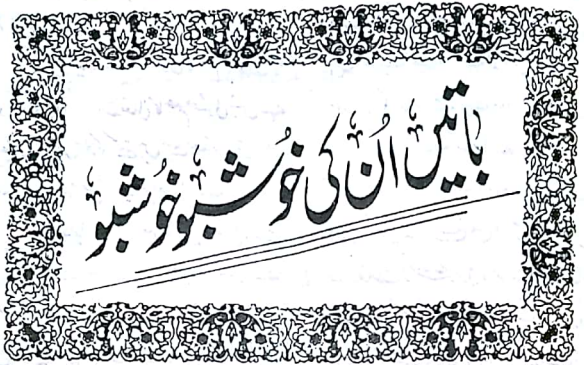 باتیں اُن کی خُوشبُو خُوشبُو